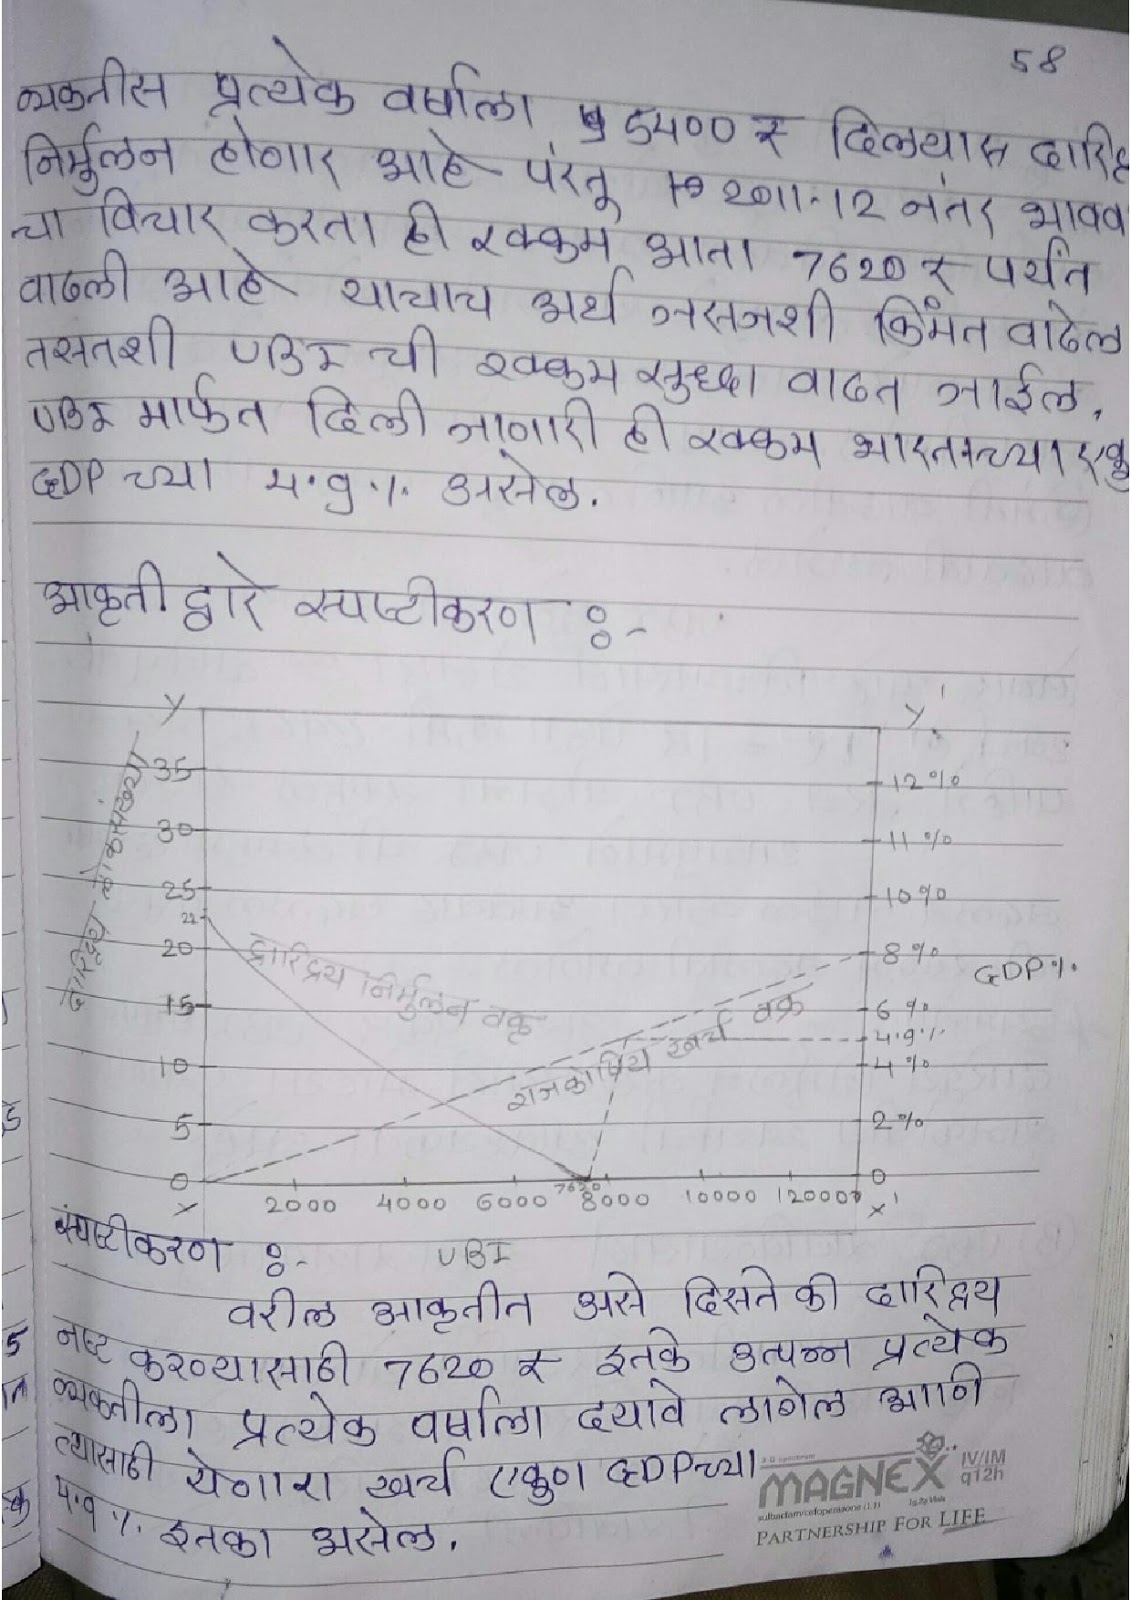 58
व्यक्तीस प्रत्येक वर्षाला 5400 ₹ दिल्यास
निर्मुलन होणार आहे परंतू 2011-12 नंतर
चा विचार करता ही रक्कम आता 7620 ₹ पर्यंत
वाढली आहे याचाच अर्थ जसजशी किंमत वाढेल
तसतशी UBI ची रक्कम सुध्दा वाढत जाईल.
UBI मार्फत दिली जाणारी ही रक्कम भारताच्या
GDP च्या ४.९ % असेल.
आकृती द्वारे स्पष्टीकरण :-
Y Y'
35 12%
30 11%
25 10%
22
20 8%
GDP %
15 6%
4.9%
10 4%
5 2%
0 0
दारिद्र्य लोकसंख्या
दारिद्र्य निर्मुलन वक्र
राजकोषिय खर्च वक्र
X 2000 4000 6000 7620 8000 10000 12000 X'
UBI
स्पष्टीकरण :-
वरील आकृतीत असे दिसते की दारिद्र्य
नष्ट करण्यासाठी 7620 ₹ इतके उत्पन्न प्रत्येक
व्यक्तीला प्रत्येक वर्षाला दयावे लागेल आणि
त्यासाठी येणारा खर्च एकुण GDP च्या
४.९ % इतका असेल.
MAGNEX IV/IM
q12h
PARTNERSHIP FOR LIFE